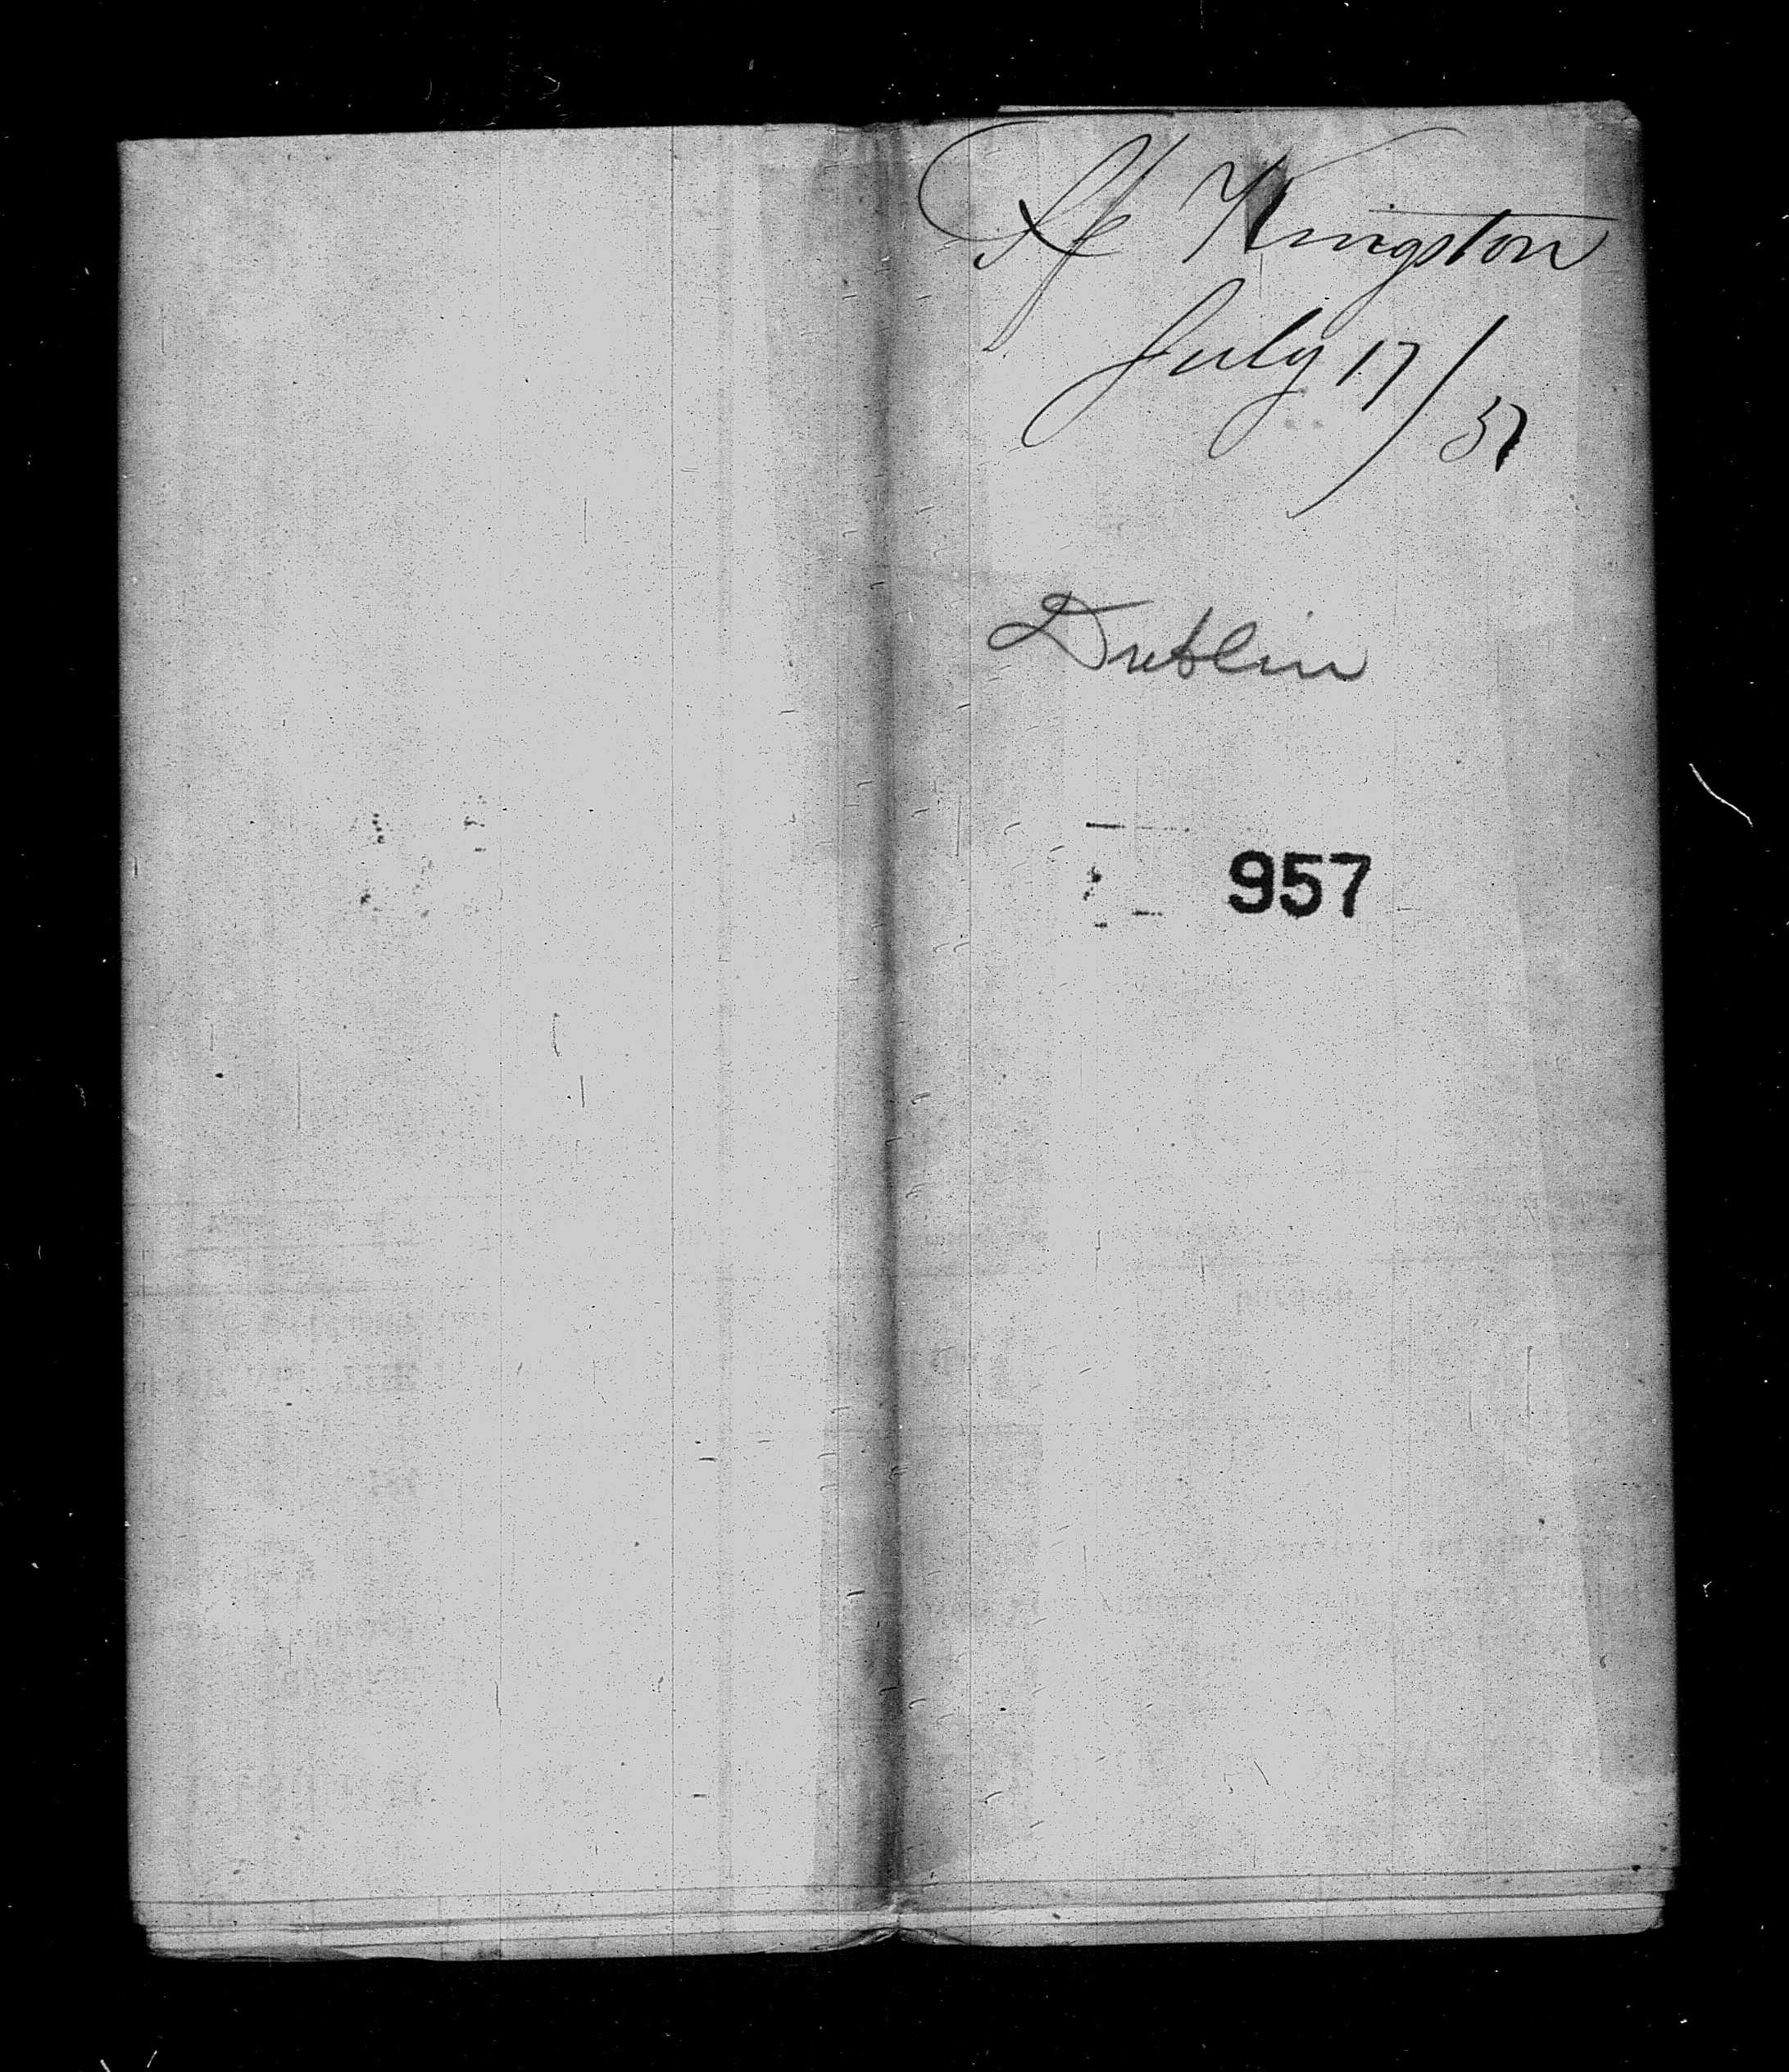 Kingston
July 17/57
Dublin
957